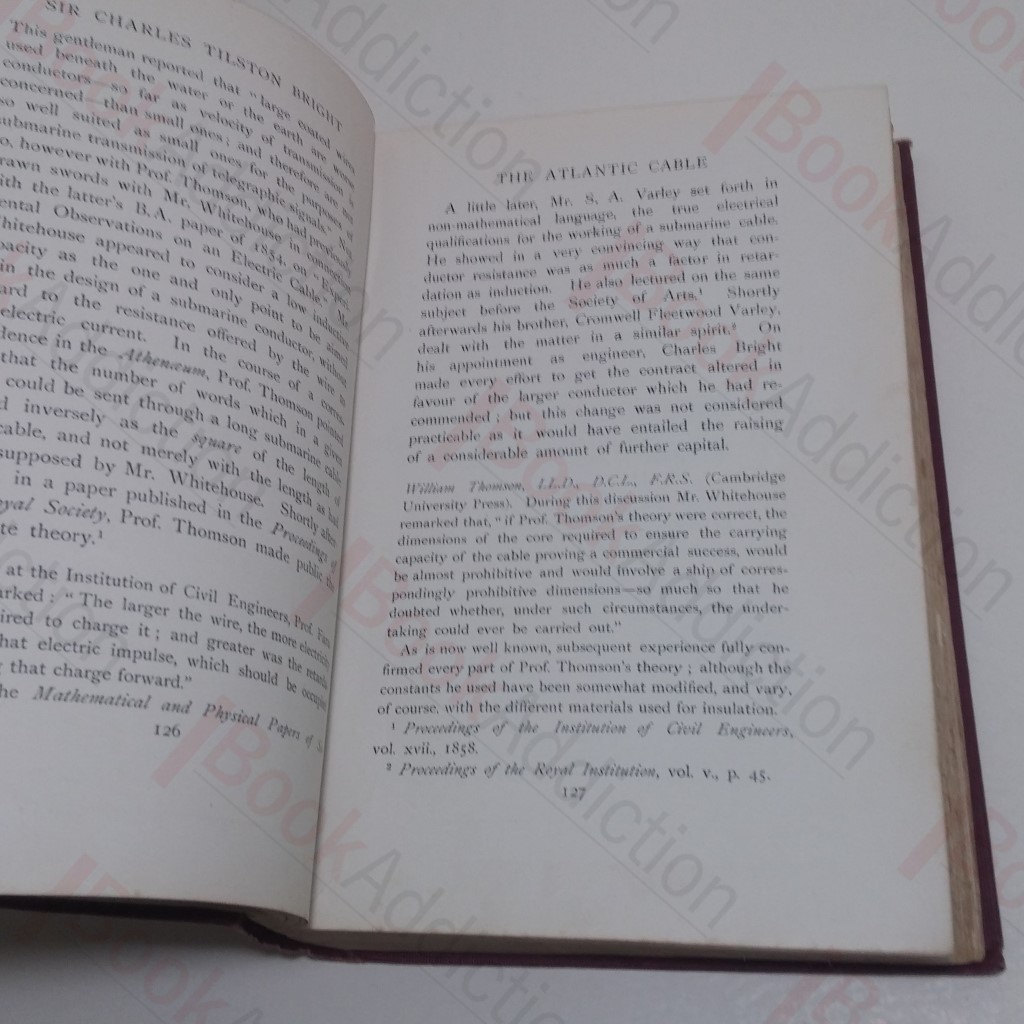 SIR CHARLES TILSTON BRIGHT
This gentleman reported that "large coated wires
used beneath the water or the earth are worse
conductors—so far as velocity of transmission is
concerned—than small ones; and therefore are not
so well suited as small ones for the purposes of
submarine transmission of telegraphic signals." Not
so, however with Prof. Thomson, who had previously
rawn swords with Mr. Whitehouse in connection
ith the latter's B.A. paper of 1854, on "Experi-
ental Observations on an Electric Cable." Mr.
hitehouse appeared to consider a low inductive
pacity as the one and only point to be aimed
in the design of a submarine conductor, without
ard to the resistance offered by the wire to
electric current. In the course of a corres-
dence in the Athenæum, Prof. Thomson pointed
that the number of words which in a given
could be sent through a long submarine cable
d inversely as the square of the length of
cable, and not merely with the length as had
supposed by Mr. Whitehouse. Shortly after
in a paper published in the Proceedings of
oyal Society, Prof. Thomson made public the
te theory.¹
at the Institution of Civil Engineers, Prof. Fara
arked: "The larger the wire, the more electricity
ired to charge it; and greater was the retarda
hat electric impulse, which should be occupied
g that charge forward."
he Mathematical and Physical Papers of Si
126
THE ATLANTIC CABLE
A little later, Mr. S. A. Varley set forth in
non-mathematical language, the true electrical
qualifications for the working of a submarine cable.
He showed in a very convincing way that con-
ductor resistance was as much a factor in retar-
dation as induction. He also lectured on the same
subject before the Society of Arts.¹ Shortly
afterwards his brother, Cromwell Fleetwood Varley,
dealt with the matter in a similar spirit.² On
his appointment as engineer, Charles Bright
made every effort to get the contract altered in
favour of the larger conductor which he had re-
commended; but this change was not considered
practicable as it would have entailed the raising
of a considerable amount of further capital.
William Thomson, LL.D., D.C.L., F.R.S. (Cambridge
University Press). During this discussion Mr. Whitehouse
remarked that, "if Prof. Thomson's theory were correct, the
dimensions of the core required to ensure the carrying
capacity of the cable proving a commercial success, would
be almost prohibitive and would involve a ship of corres-
pondingly prohibitive dimensions—so much so that he
doubted whether, under such circumstances, the under-
taking could ever be carried out."
As is now well known, subsequent experience fully con-
firmed every part of Prof. Thomson's theory; although the
constants he used have been somewhat modified, and vary,
of course, with the different materials used for insulation.
¹ Proceedings of the Institution of Civil Engineers,
vol. xvii., 1858.
² Proceedings of the Royal Institution, vol. v., p. 45.
127
BookAddiction